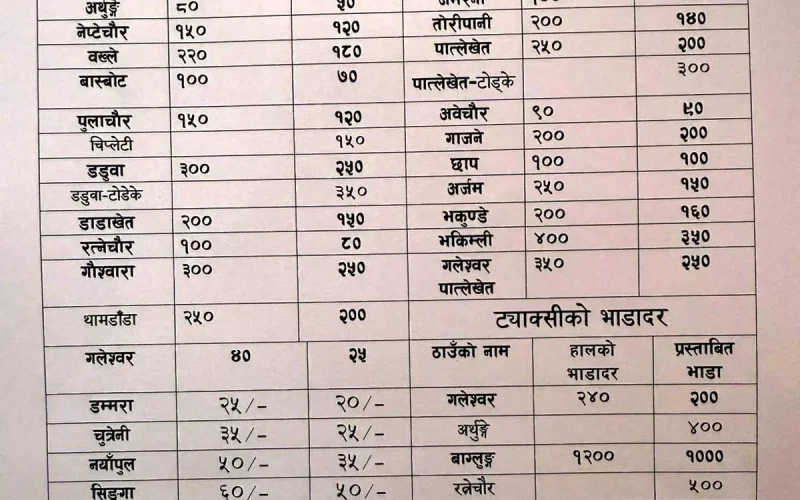 अर्थुङ्गे ८० ५०
नेप्टेचौर १५० १२० तोरीपानी २०० १४०
वख्ले २२० १८० पात्लेखेत २५० २००
बास्बोट १०० ७० पात्लेखेत-टोड्के ३००
पुलाचौर १५० १२० अवेचौर ९० ९०
चिप्लेटी १५० गाजने २०० २००
डडुवा ३०० २५० छाप १०० १००
डडुवा-टोडेके ३५० अर्जम २५० १५०
डाडाखेत २०० १५० भकुण्डे २०० १६०
रत्नेचौर १०० ८० भकिम्ली ४०० ३५०
गौश्वारा ३०० २५० गलेश्वर ३५० २५०
पात्लेखेत
थामडाँडा २५० २०० ट्याक्सीको भाडादर
गलेश्वर ४० २५ ठाउँको नाम हालको प्रस्ताबित
भाडादर भाडा
डम्मरा २५/- २०/- गलेश्वर २४० २००
चुत्रेनी ३५/- २५/- अर्थुङ्गे ४००
नयाँपुल ५०/- ३५/- बाग्लुङ्ग १२०० १०००
सिङगा ६०/- ५०/- रत्नेचौर ५००